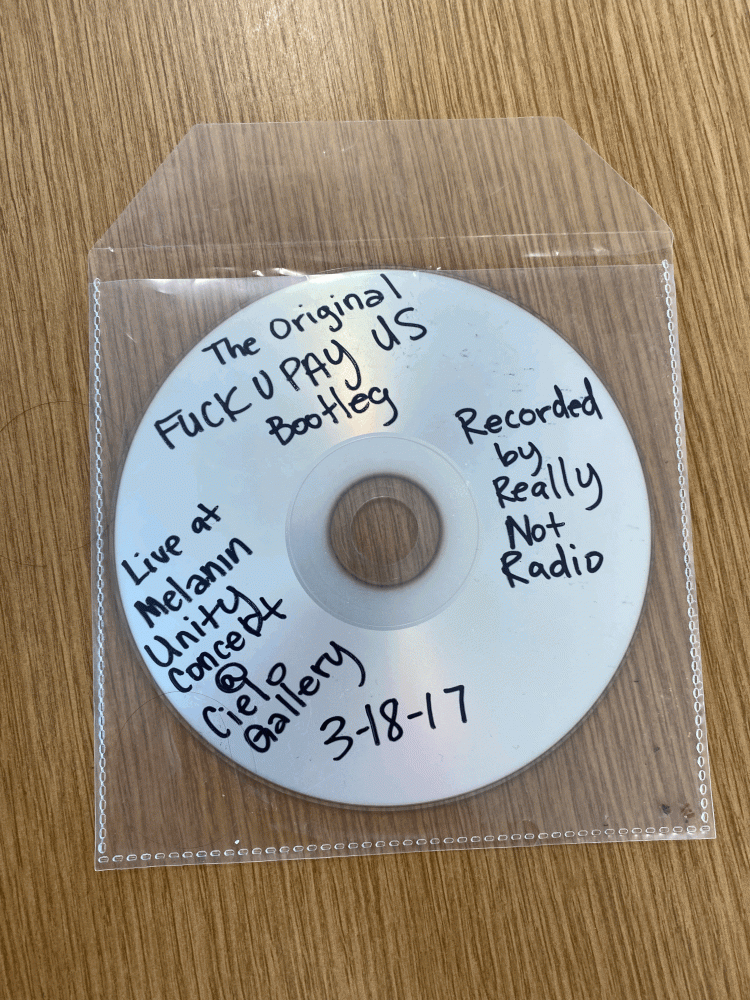 The Original
FUCK U PAY US
Bootleg
Recorded
by
Really
Not
Radio
Live at
Melanin
Unity
Concept
@
Cielo
Gallery
3-18-17